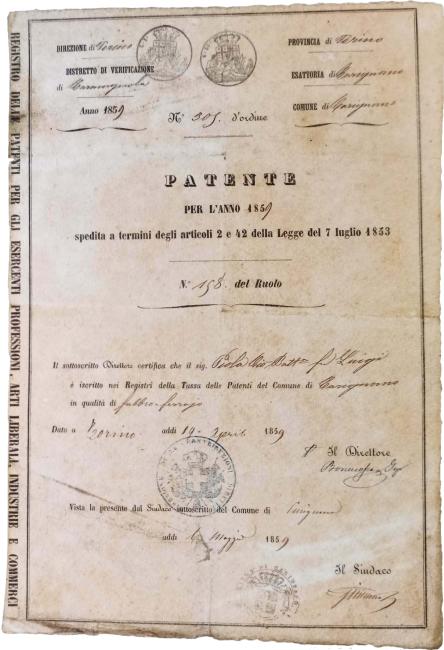 DIREZIONE di Torino
DISTRETTO DI VERIFICAZIONE
di Carmagnola
Anno 1859
PROVINCIA di Torino
ESATTORIA di Carignano
COMUNE di Carignano
N.° 305. d'ordine
PATENTE
PER L'ANNO 1859
spedita a termini degli articoli 2 e 42 della Legge del 7 luglio 1853
N.° 158. del Ruolo
Il sottoscritto Direttore certifica che il sig. Piola Gio Batta fu Luigi
è iscritto nei Registri della Tassa delle Patenti del Comune di Carignano
in qualità di fabbro-ferrajo
Dato a Torino addì 14 Aprile 1859
Il Direttore
Vista la presente dal Sindaco sottoscritto del Comune di Carignano
addì 6 Maggio 1859
Il Sindaco
REGISTRO DELLE PATENTI PER GLI ESERCENTI PROFESSIONI, ARTI LIBERALI, INDUSTRIE E COMMERCI